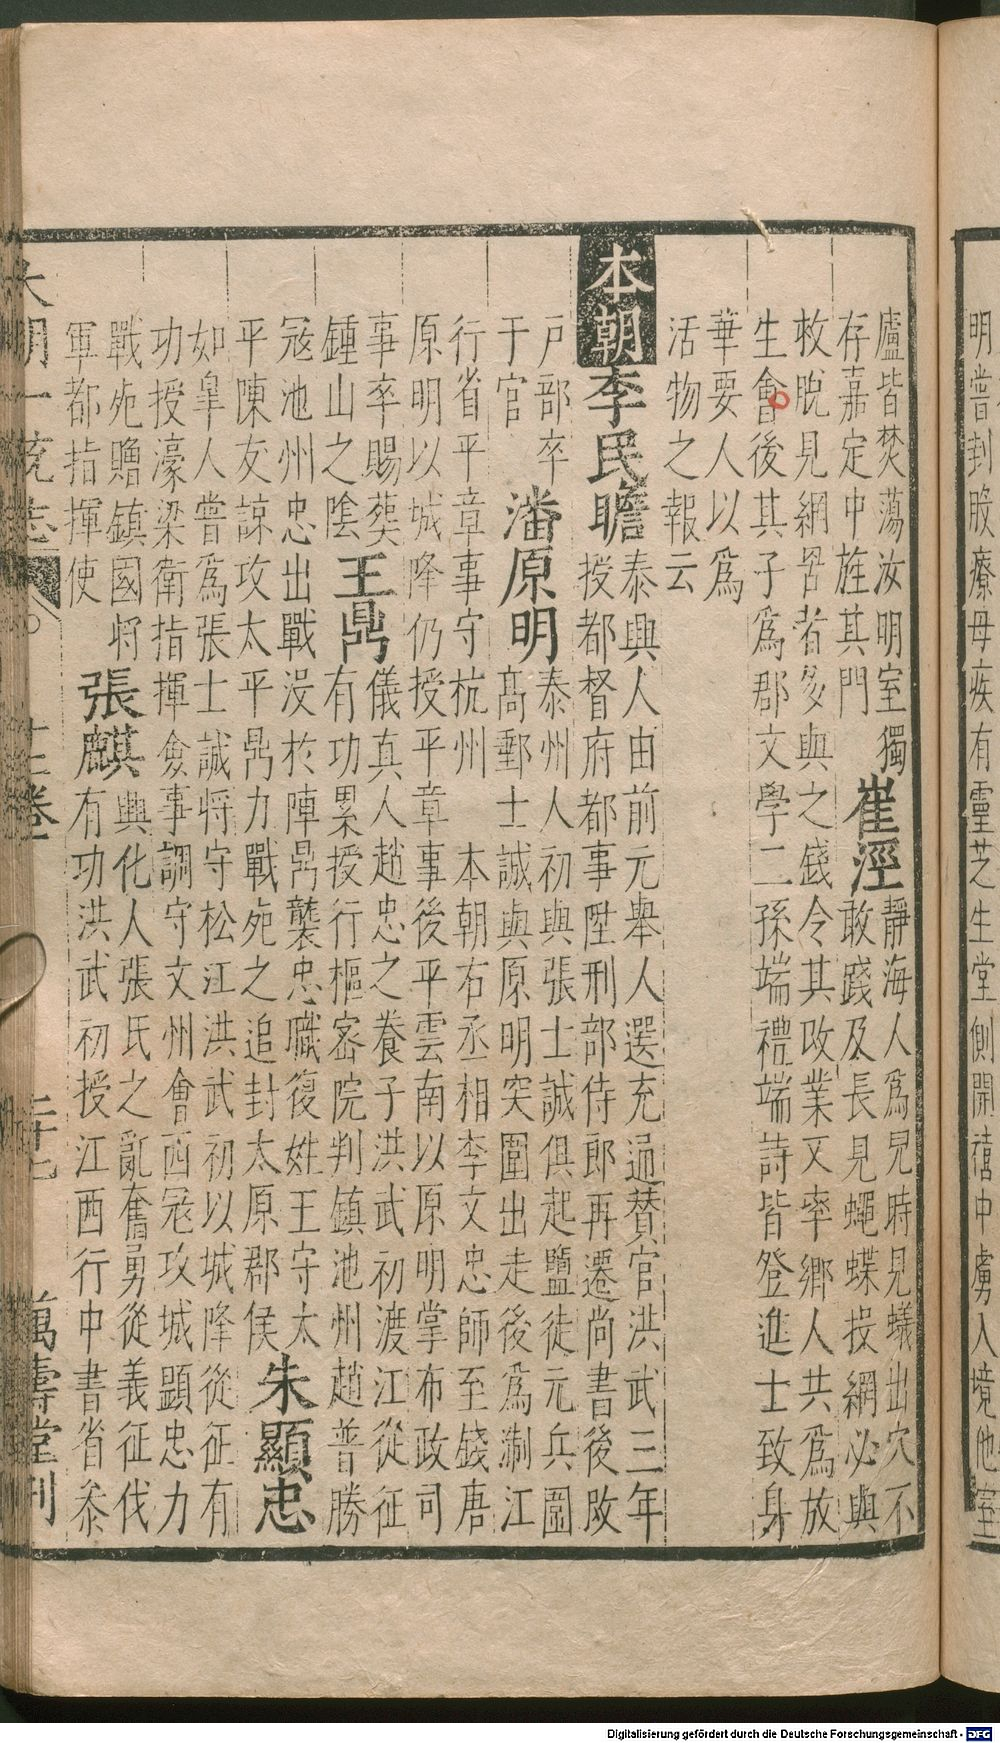 明嘗封股療母疾有靈芝生堂側開禧中虜入境他室
廬皆焚蕩汝明室獨
存嘉定中旌其門
崔涇
靜海人爲兒時見蟻出穴不
敢踐及長見蠅蝶投網必與
救脫見網罟者多與之錢令其改業又率鄉人共爲放
生會後其子爲郡文學二孫端禮端詩皆登進士致身
華要人以爲
活物之報云
本朝李民瞻
泰興人由前元舉人選充通贊官洪武三年
授都督府都事陞刑部侍郎再遷尚書後改
戶部卒
于官
潘原明
泰州人初與張士誠俱起鹽徒元兵圍
高郵士誠與原明突圍出走後爲淛江
行省平章事守杭州 本朝右丞相李文忠師至錢唐
原明以城降仍授平章事後平雲南以原明掌布政司
事卒賜葬
鍾山之陰
王鼎
儀真人趙忠之養子洪武初渡江從征
有功累授行樞密院判鎮池州趙普勝
寇池州忠出戰沒於陣鼎襲忠職復姓王守太
平陳友諒攻太平鼎力戰死之追封太原郡侯
朱顯忠
如皐人嘗爲張士誠將守松江洪武初以城降從征有
功授濠梁衛指揮僉事調守文州會西寇攻城顯忠力
戰死贈鎮國將
軍都指揮使
張麒
興化人張氏之亂奮勇從義征伐
有功洪武初授江西行中書省叅
大明一統志 十二卷 二十七 萬壽堂刊
Digitalisierung gefördert durch die Deutsche Forschungsgemeinschaft - DFG